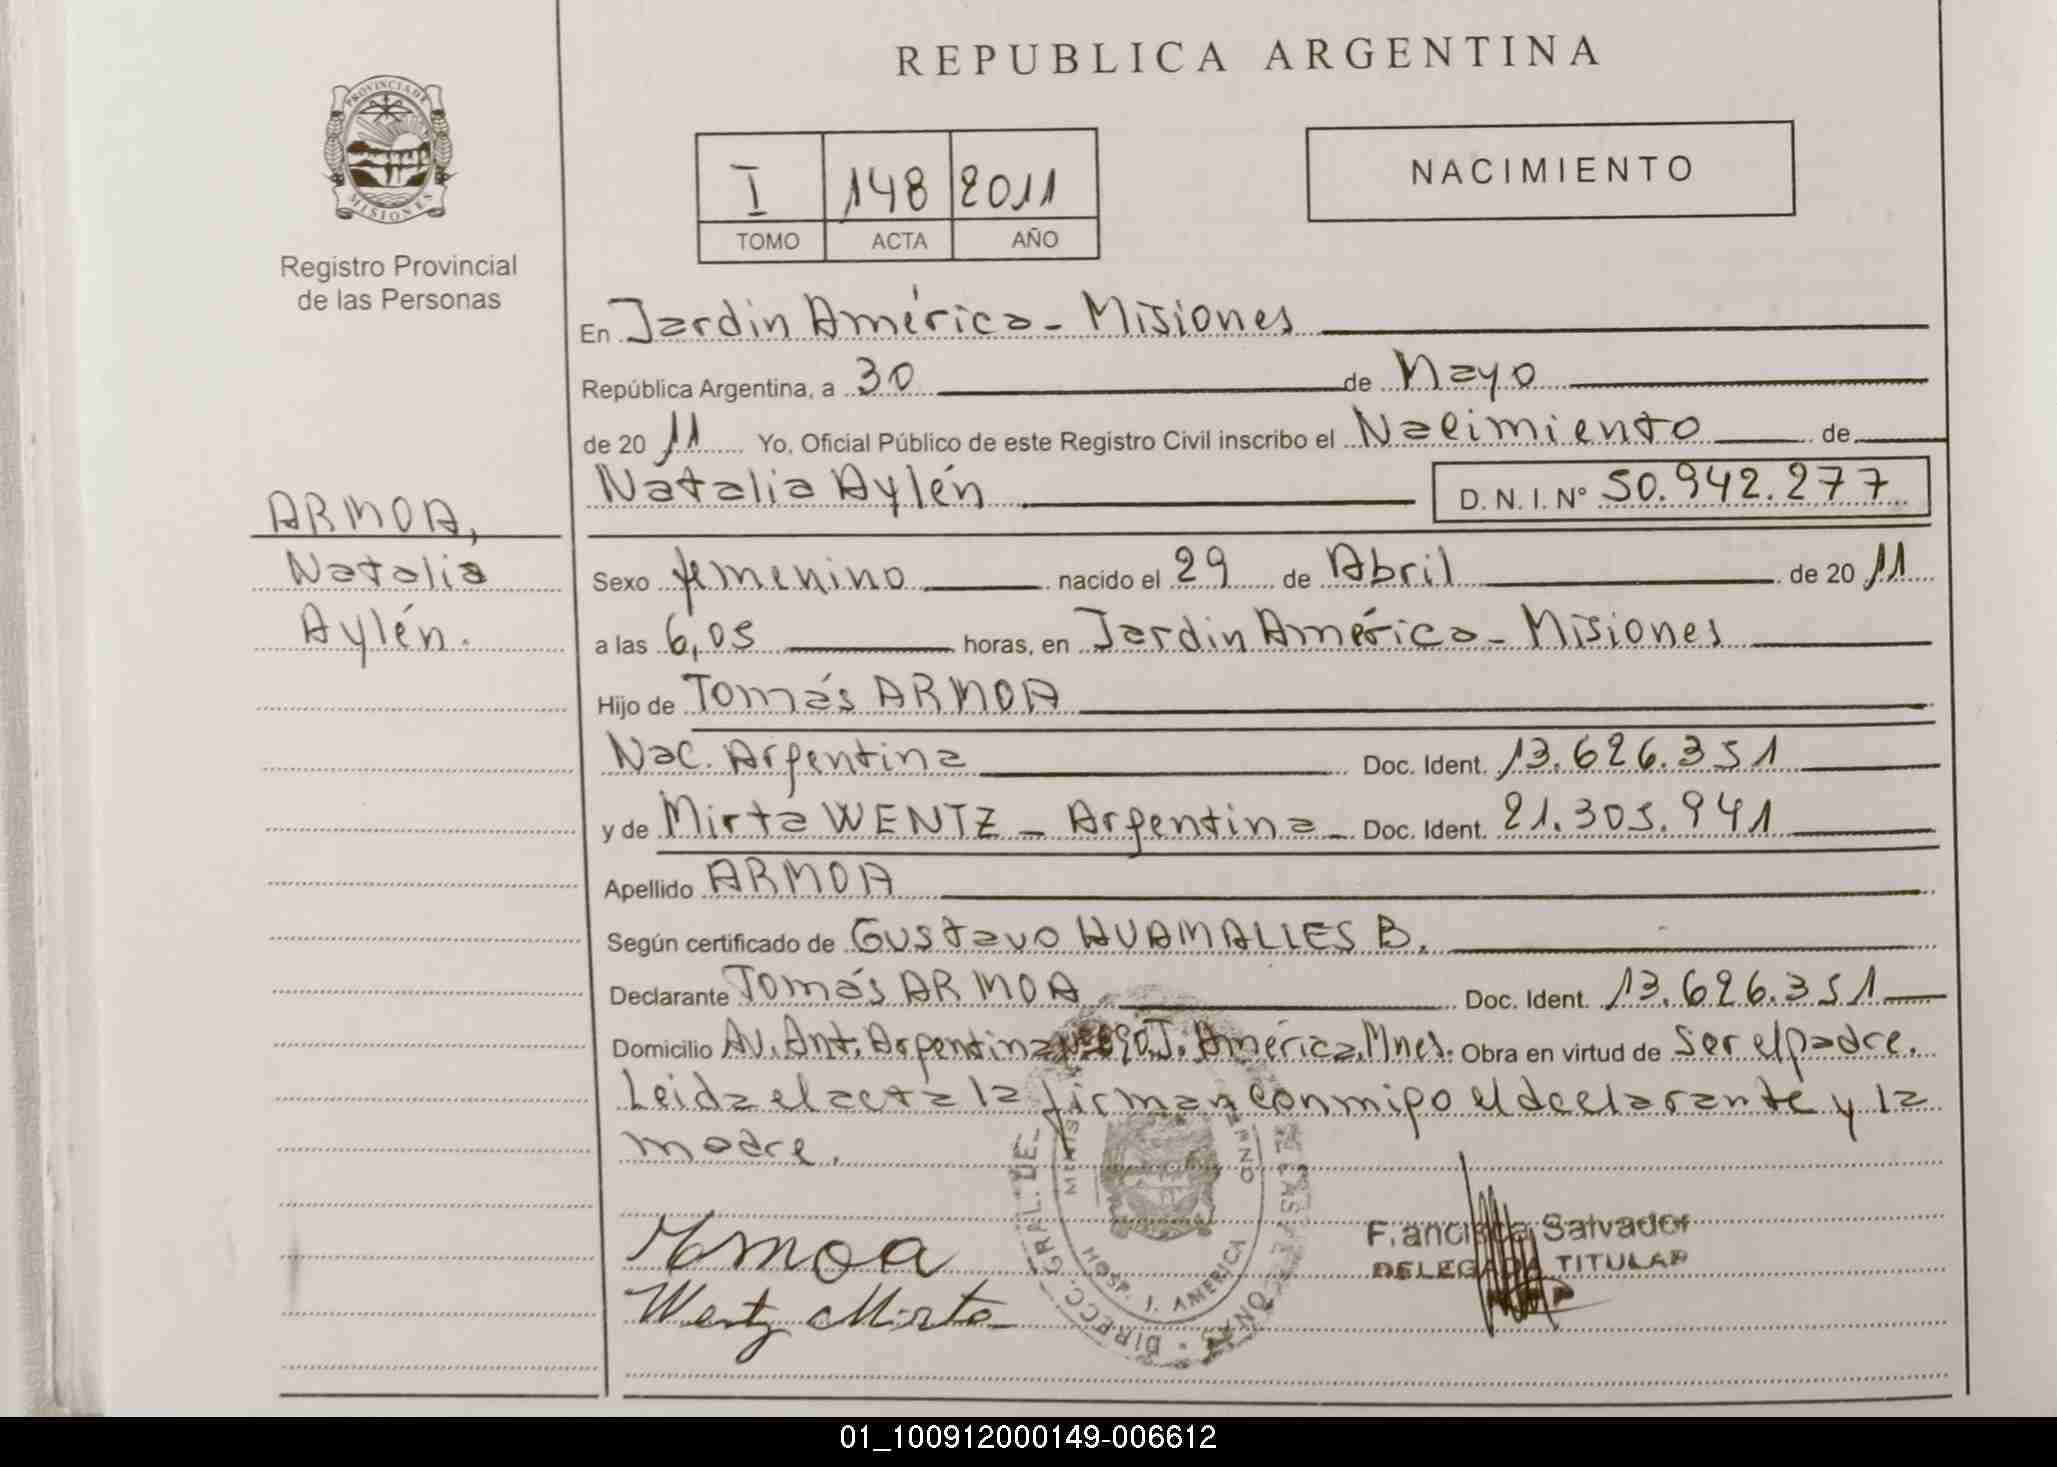 REPUBLICA ARGENTINA
PROVINCIA DE
MISIONES
Registro Provincial
de las Personas
I 148 2011
TOMO ACTA AÑO
NACIMIENTO
En Jardin América - Misiones
República Argentina, a 30 de Mayo
de 20 11 Yo, Oficial Público de este Registro Civil inscribo el Nacimiento de
Natalia Aylén D. N. I. N° 50.942.277
ARMOA,
Natalia
Aylén.
Sexo femenino nacido el 29 de Abril de 20 11
a las 6,05 horas, en Jardin América - Misiones
Hijo de Tomás ARMOA
Nac. Argentina Doc. Ident. 13.626.351
y de Mirta WENTZ - Argentina - Doc. Ident. 21.305.941
Apellido ARMOA
Según certificado de Gustavo HUAMALLIES B.
Declarante Tomás ARMOA Doc. Ident. 13.626.351
Domicilio Av. Ant. Argentina J. América. Mnes. Obra en virtud de ser el padre.
Leida el acta la firman conmigo el declarante y la
madre.
Armoa
Wentz Mirta
DIRECC. GRAL. DE
HOSP. J. AMERICA
Francisca Salvador
DELEGADA TITULAR
01_100912000149-006612